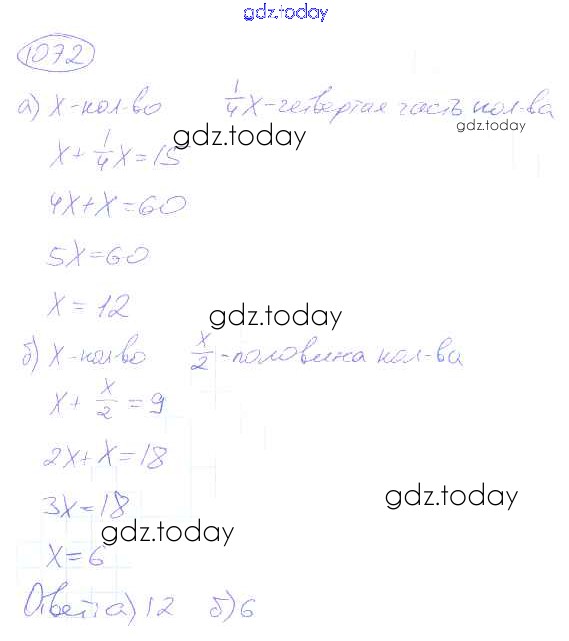 gdz.today
1072
а) x-кол-во 1/4x-четвертая часть кол-ва
gdz.today
gdz.today
x+1/4x=15
4x+x=60
5x=60
x=12
gdz.today
б) x-кол-во x/2-половина кол-ва
x+x/2=9
2x+x=18
3x=18
gdz.today
gdz.today
x=6
Ответ: а) 12 б) 6